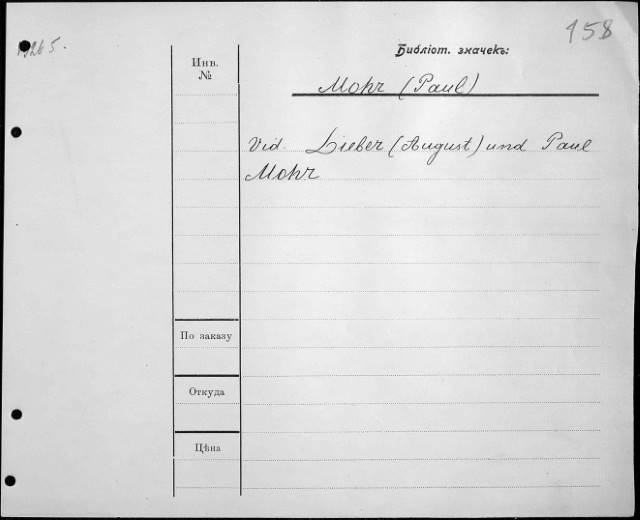 158
Библіот. значекъ:
Инв.
№
Mohr (Paul)
Vid. Lieber (August) und Paul
Mohr
По заказу
Откуда
Цѣна